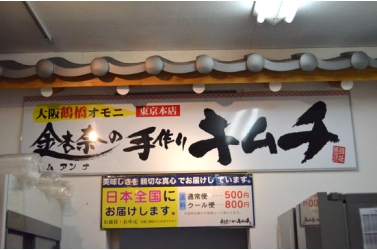 大阪鶴橋オモニ 東京本店
金杏奈の手作りキムチ
キムアンナ
美味しさを 親切な真心 でお届けしています。
日本全国に
お届けします。
通常便 500円
クール便 800円